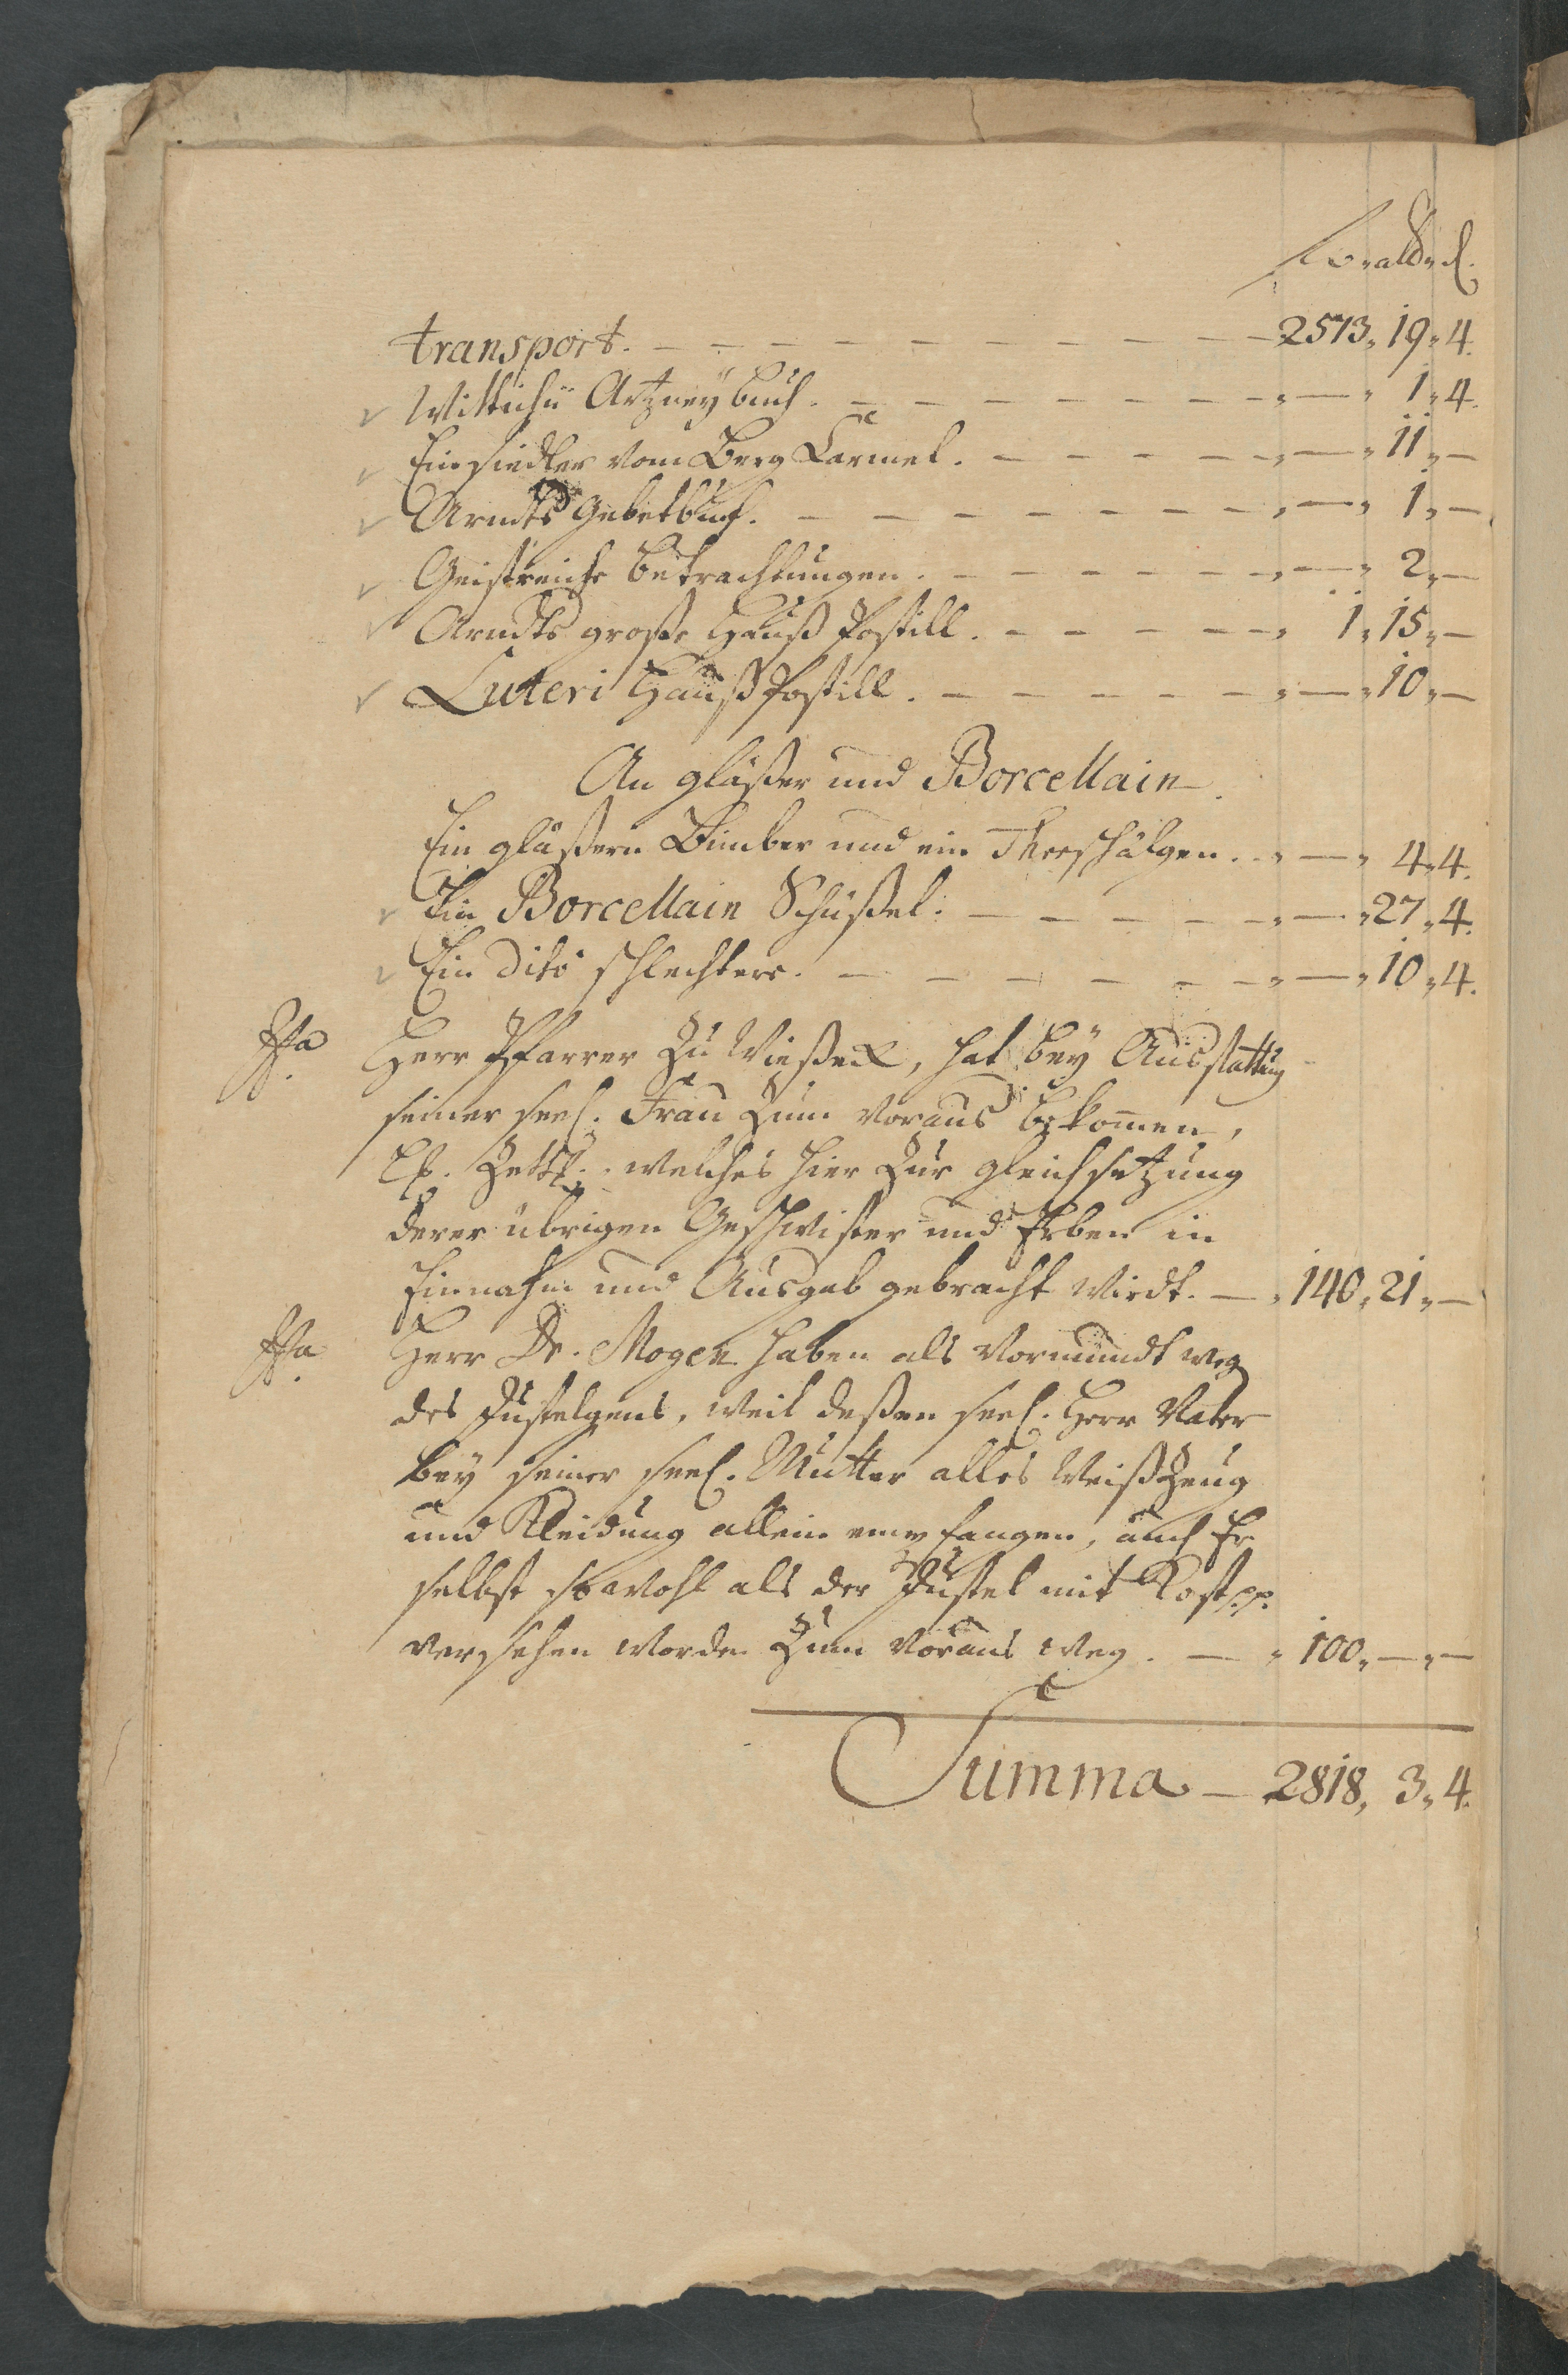 f. alb. d.
transport. — — — — — — — — — 2573„ 19„ 4.
Wittichii Artzneÿ buch. — — — — — — „ — „ 1„ 4.
Einsiedler vom Berg Carmel. — — — — — „ — „ 11„ —
Arndts Gebetbuch. — — — — — — — „ — „ 1„ —
Geistreiche betrachtungen. — — — — — „ — „ 2„ —
Arndts große Hauß Postill. — — — — „ 1„ 15„ —
Luteri Hauß Postill. — — — — — „ — „ 10„ —
An gläßer und Borcellain.
Ein gläßern Bimber und ein Theeschälgen. „ — „ 4„ 4.
Ein Borcellain Schüßel. — — — — — „ — „ 27„ 4.
Ein dito schlechtere. — — — — — — „ — „ 10„ 4.
Herr Pfarrer Zu Wießeck, hat beÿ Ausstattung
seiner seel. Frau Zum Voraus bekom̄en,
welches hier Zur gleichsetzung
derer übrigen Geschwister und Erben in
Einnahm und Ausgab gebracht Wirdt. — „ 140„ 21„ —
Herr Dr. Mogen haben als Vormundt weg
des Justelgens, weil deßen seel. Herr Vater
beÿ seiner seel. Mutter alles Weißzeug
und Kleidung allein empfangen, auch Er
selbst sowohl als der Justel mit Kost pp.
versehen worden Zum Voraus weg. — „ 100„ — „ —
Summa — 2818„ 3„ 4.